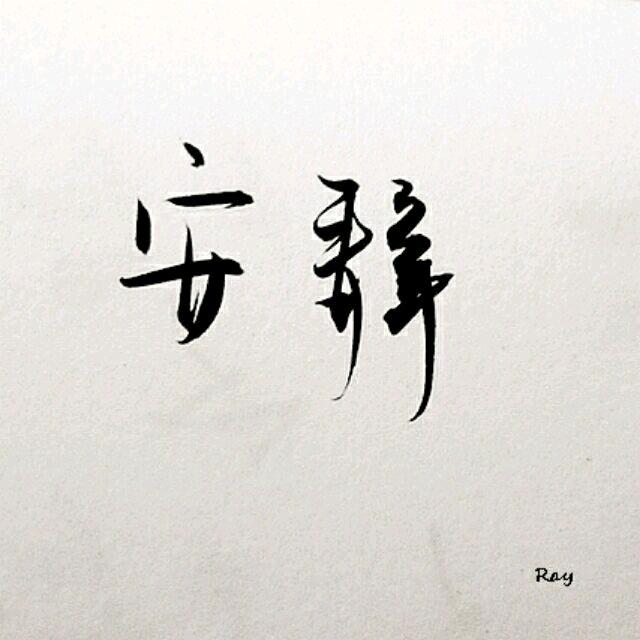 安靜
Ray